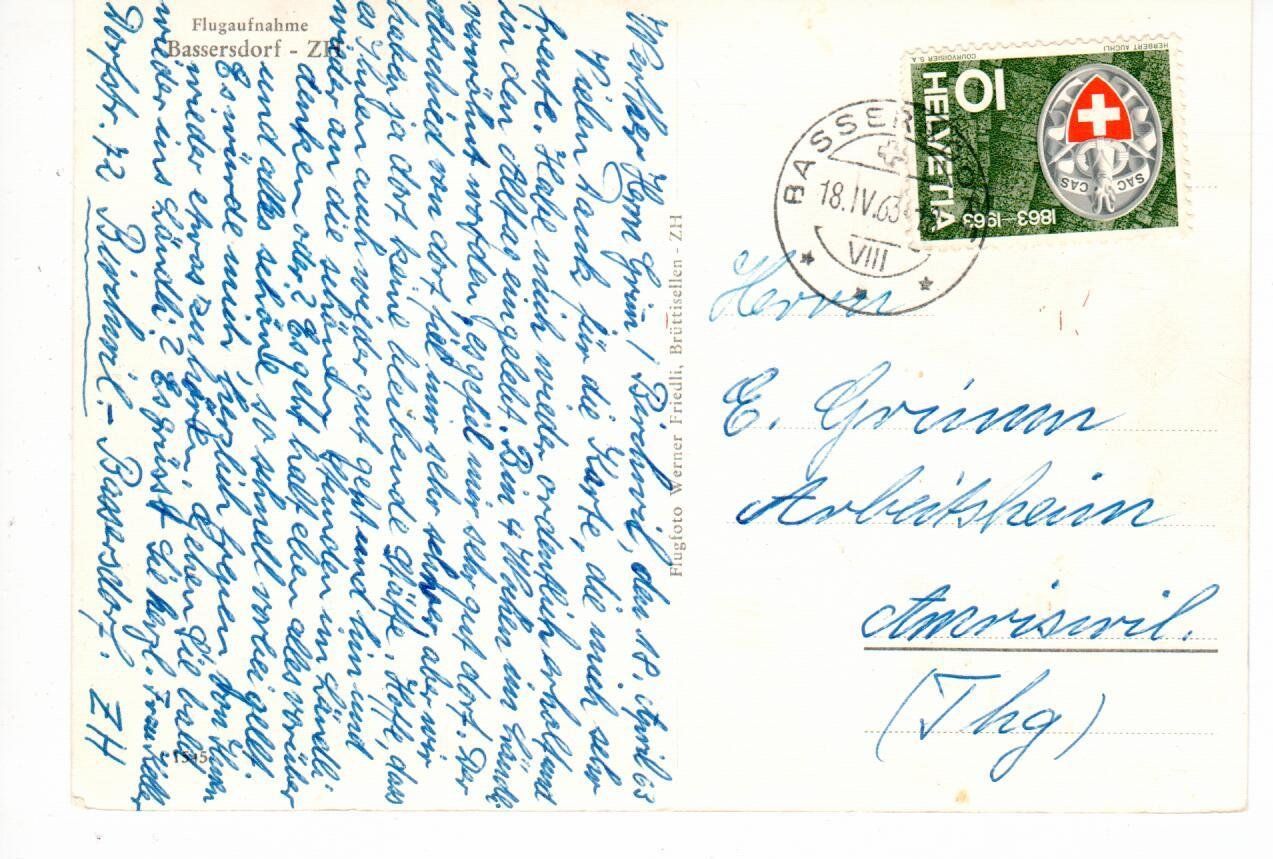 Flugaufnahme
Bassersdorf - ZH
Werter Herr Grün! Birchwil, den 18. April 63
Vielen Dank für die Karte, die mich sehr
freute. Habe mich wieder ordentlich erholt und
in den Alltag eingelebt. Bin 4 Wochen im Ländli
verwöhnt worden, es gefiel mir sehr gut dort. Der
Abschied von dort fiel mir sehr schwer, aber wir
haben ja dort keine bleibende Stätte. Hoffe, dass
es Ihnen auch wieder gut geht und bin und
wieder an die schönen Stunden im Ländli
denken oder? Es geht halt eben alles vorüber
und alles schöne so schnell vorbei gell.
Es würde mich herzlich freuen von Ihnen
wieder etwas zu hören. Gehen Sie bald
wieder ins Ländli? Es grüsst Sie herzl. Frau Keller
Dorfstr. 72 Birchwil - Bassersdorf. ZH
1515
Flugfoto Werner Friedli, Brüttisellen - ZH
HELVETIA
10
1863-1963
SAC
CAS
COURVOISIER S.A.
HERBERT AUCHLI
BASSERSDORF
18.IV.63
VIII
Herrn
E. Grünn
Arbeitsheim
Amriswil.
(Thg)